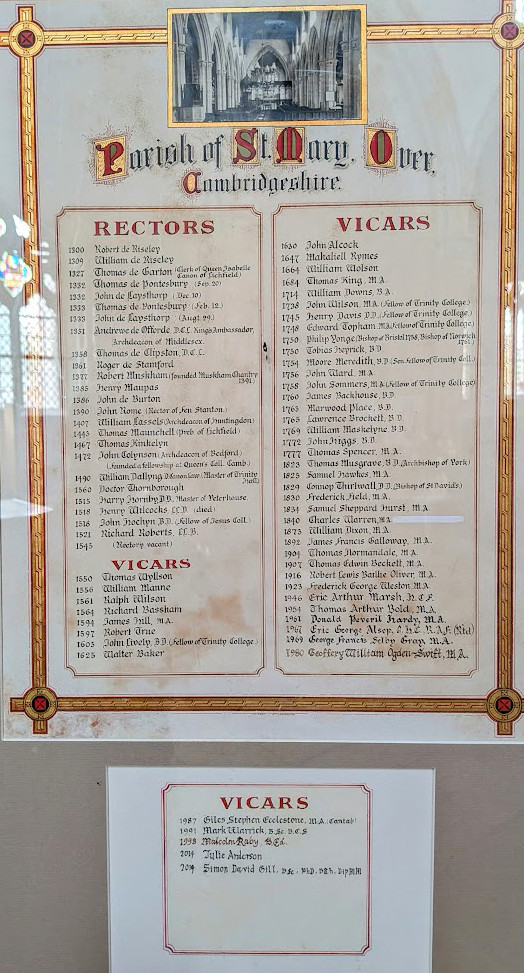 Parish of St. Mary, Over,
Cambridgeshire.
RECTORS
1300 Robert de Riseley
1309 William de Riseley
1327 Thomas de Garton (Clerk of Queen Isabelle
Canon of Lichfield)
1332 Thomas de Pontesbury (Sep. 20)
1332 John de Laysthorp (Dec. 10)
1333 Thomas de Pontesbury (Feb. 12.)
1333 John de Laysthorp (Aug. 29.)
1351 Andrewe de Offorde D.C.L. Kings Ambassador,
Archdeacon of Middlesex.
1358 Thomas de Clipston, D.C.L.
1361 Roger de Stamford
1377 Robert Muskham (founded Muskham Chantry
1391)
1385 Henry Maupas
1386 John de Burton
1390 John Rome (Rector of Fen Stanton.)
1407 William Lassels (Archdeacon of Huntingdon)
1443 Thomas Maunchell (Preb. of Lichfield)
1467 Thomas Kinkelyn
1472 John Colynson (Archdeacon of Bedford)
(founded a fellowship at Queen's Coll. Camb.)
1490 William Dallyng (Master of Trinity
Hall)
1560 Doctor Thornborough
1515 Harry Hornby D.D. Master of Peterhouse
1518 Henry Wilcocks LL.D. (died)
1518 John Hochyn B.D. (Fellow of Jesus Coll.)
1521 Richard Roberts, LL.B.
1545 (Rectory vacant)
VICARS
1550 Thomas Wyllson
1556 William Manne
1561 Ralph Wilson
1564 Richard Bassham
1594 James Hill, M.A.
1597 Robert True
1603 John Lively, B.D. (Fellow of Trinity College)
1625 Walter Baker
VICARS
1630 John Alcock
1647 Makaliell Rymes
1664 William Wolson
1684 Thomas King, M.A.
1714 William Downs, B.A.
1738 John Wilson, M.A. (Fellow of Trinity College.)
1745 Henry Davis D.D. (Fellow of Trinity College.)
1748 Edward Topham M.A. (Fellow of Trinity College)
1750 Philip Yonge (Bishop of Bristol 1758, Bishop of Norwich
1761)
1750 Tobias Heyrick, B.D.
1754 Moore Meredith, B.D. (Sen. Fellow Trinity Coll.)
1756 John Ward, M.A.
1758 John Sommers, M.A. (Fellow of Trinity College)
1760 James Backhouse, B.D.
1763 Marwood Place, B.D.
1765 Lawrence Brochett, B.D.
1769 William Maskelyne B.D.
1772 John Higgs, B.D.
1777 Thomas Spencer, M.A.
1823 Thomas Musgrave, B.D. (Archbishop of York)
1825 Samuel Hawkes, M.A.
1829 Connop Thirlwall, B.D. (Bishop of St David's)
1830 Frederick Field, M.A.
1834 Samuel Sheppard Hurst, M.A.
1840 Charles Warren, M.A.
1873 William Dixon, M.A.
1892 James Francis Galloway, M.A.
1904 Thomas Normandale, M.A.
1907 Thomas Edwin Beckett, M.A.
1916 Robert Lewis Baillie Oliver, M.A.
1923 Frederick George Weston M.A.
1946 Eric Arthur Marsh, H.C.F.
1954 Thomas Arthur Bold, M.A.
1961 Donald Peveril Hardy, M.A.
1967 Eric George Alsop, R.A.F. (Rtd)
1969 George Francis Selby Gray, M.A.
1980 Geoffery William Ogden-Swift, M.A.
VICARS
1987 Giles Stephen Ecclestone, M.A. (Cantab)
1991 Mark Warrick, B.Sc. B.C.S
1998 Malcolm Raby, B.Ed.
2014 Julie Anderson
2019 Simon David Gill, B.Sc., PhD, DipMM